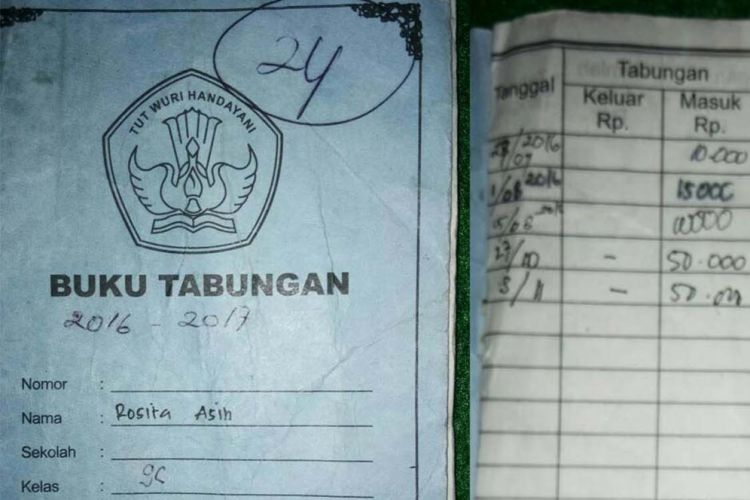 24
TUT WURI HANDAYANI
BUKU TABUNGAN
2016 - 2017
Nomor :
Nama : Rosita Asih
Sekolah :
Kelas : 9C
Tanggal Tabungan
Keluar Rp. Masuk Rp.
/2016 10.000
1/08 2016 15000
10000
27/10 - 50.000
3/11 - 50.000